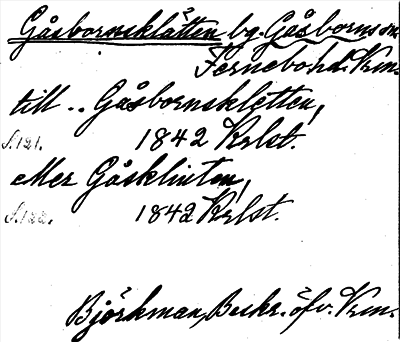 Gåsbornsklätten bg. Gåsborns sn.
Fernebo hd. Vrm.
till .. Gåsbornskletten,
S. 121. 1842 Krlst.
eller Gåsklinten,
S. 122. 1842 Krlst.
Björkman, Beskr. öfv. Vrm.